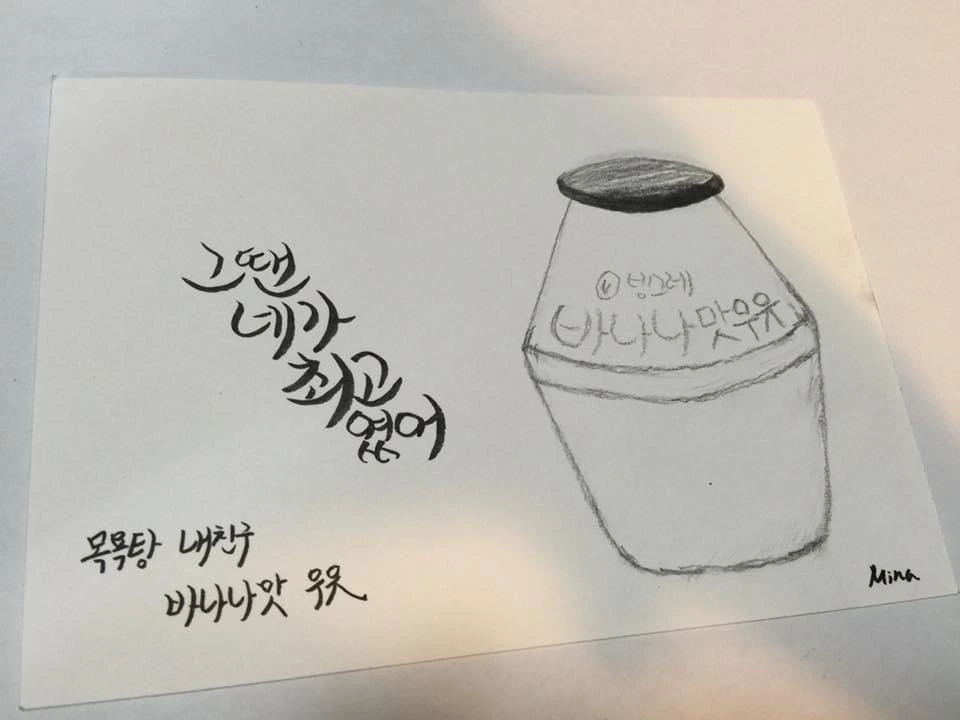 그땐
네가
최고
였어
목욕탕 내친구
바나나맛 우유
빙그레
바나나맛우유
Mina